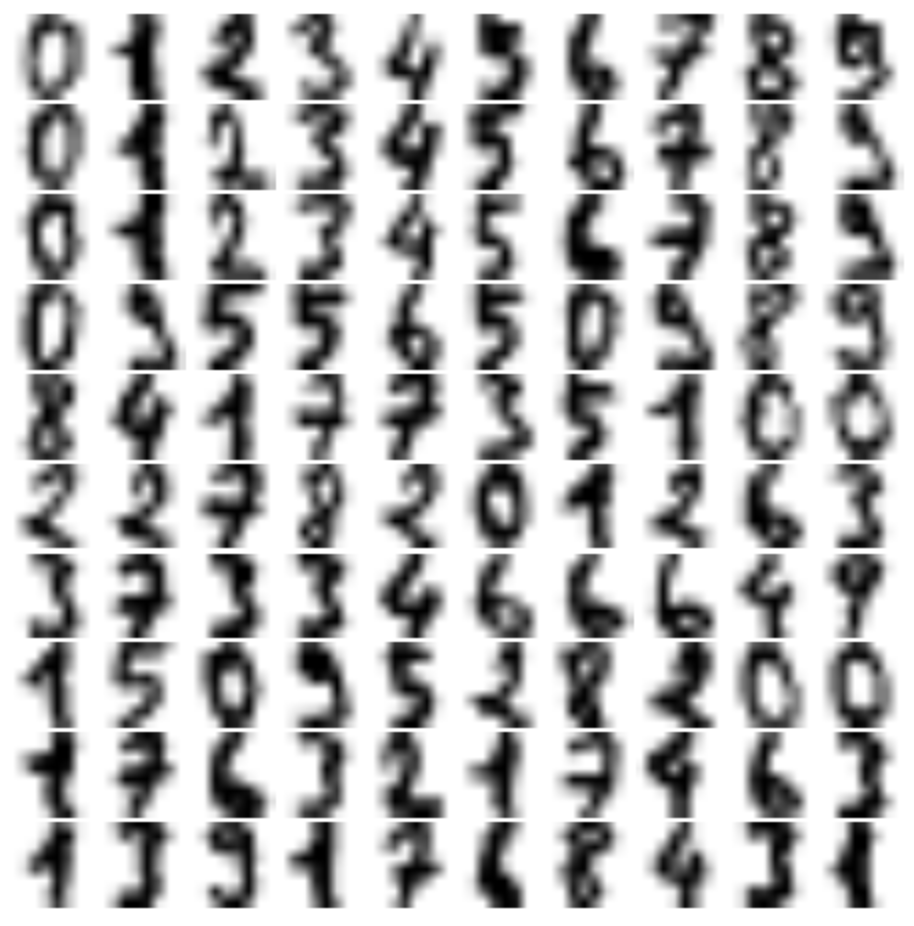 0 1 2 3 4 5 6 7 8 9
0 1 2 3 4 5 6 7 8 9
0 1 2 3 4 5 6 7 8 9
0 9 5 5 6 5 0 9 8 9
8 4 1 7 7 3 5 1 0 0
2 2 7 8 2 0 1 2 6 3
3 7 3 3 4 6 6 6 4 9
1 5 0 9 5 2 8 2 0 0
1 7 6 3 2 1 7 4 6 3
1 3 9 1 7 6 8 4 3 1